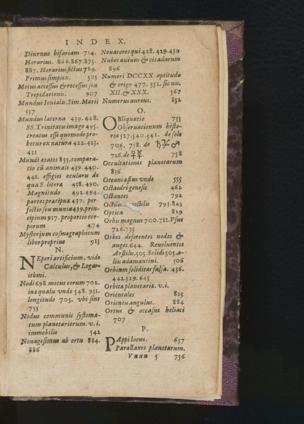 INDEX.
Diurnus bifariam 714.
Horarius. 866.867.875.
887. Horarius fictus 789.
Primus simplex. 505
Motus accessus & recessus seu
Trepidationis. 907
Mundus Iouialis Sim. Marii
557
Mundus laterna 439. 648.
SS. Trinitatis imago 495.
creatum esse quomodo pro-
betur ex natura 422. 423.
431
Mundi aetates 855. compara-
tio cū animali 439. 440.
441. effigies ocularis de
qua S. litera 438. 490.
Magnitudo 492. 494.
partes praecipuae 437. per-
fectio seu munia 439. prin-
cipium 917. proportio cor-
porum 474
Mysterium cosmographicum
liber proprius 915
N.
NEperi artificium, vide
Calculus, & Logar-
ithmi.
Nodi 698 motus eorum 702.
inaequalis vnde 548. 951.
longitudo 705. vbi sint
753
Nodus communis systema-
tum planetariorum. v. i.
immobilis 542
Nonagesimus ab ortu 884.
886
Nouaceres qui 428. 429. 430
Nubes autem & cicadarum
896
Numeri DCCXX. aptitudo
& origo 477. 551. sic nu.
XII. & XXX. 567
Numerus aureus. 852
O.
OBliquatio 733
Observationum histo-
ria 527. 540. de sole
706. 738. de ♄♃♂
726. de ♀☿ 738
Occultationes planetarum
836
Oceani aestus vnde 555
Octaedri genesis 462
Octantes 792
795. 843
Optica 819
Orbis magnus 700. 711. Vsus
726. 735
Orbes deferentes nodos &
auges 644. Reuoluentes
Aristile. 505. Solidi 505. a-
lii adamantini. 506
Orbium soliditas falsa. 436.
442. 529. 645
Orbita planetaria. v. i.
Orientales 825
Orientū angulus. 884
Ortus & occasus heliaci
707
P.
PAppi locus. 637
Parallaxes planetarum.
Vnnn 5 736